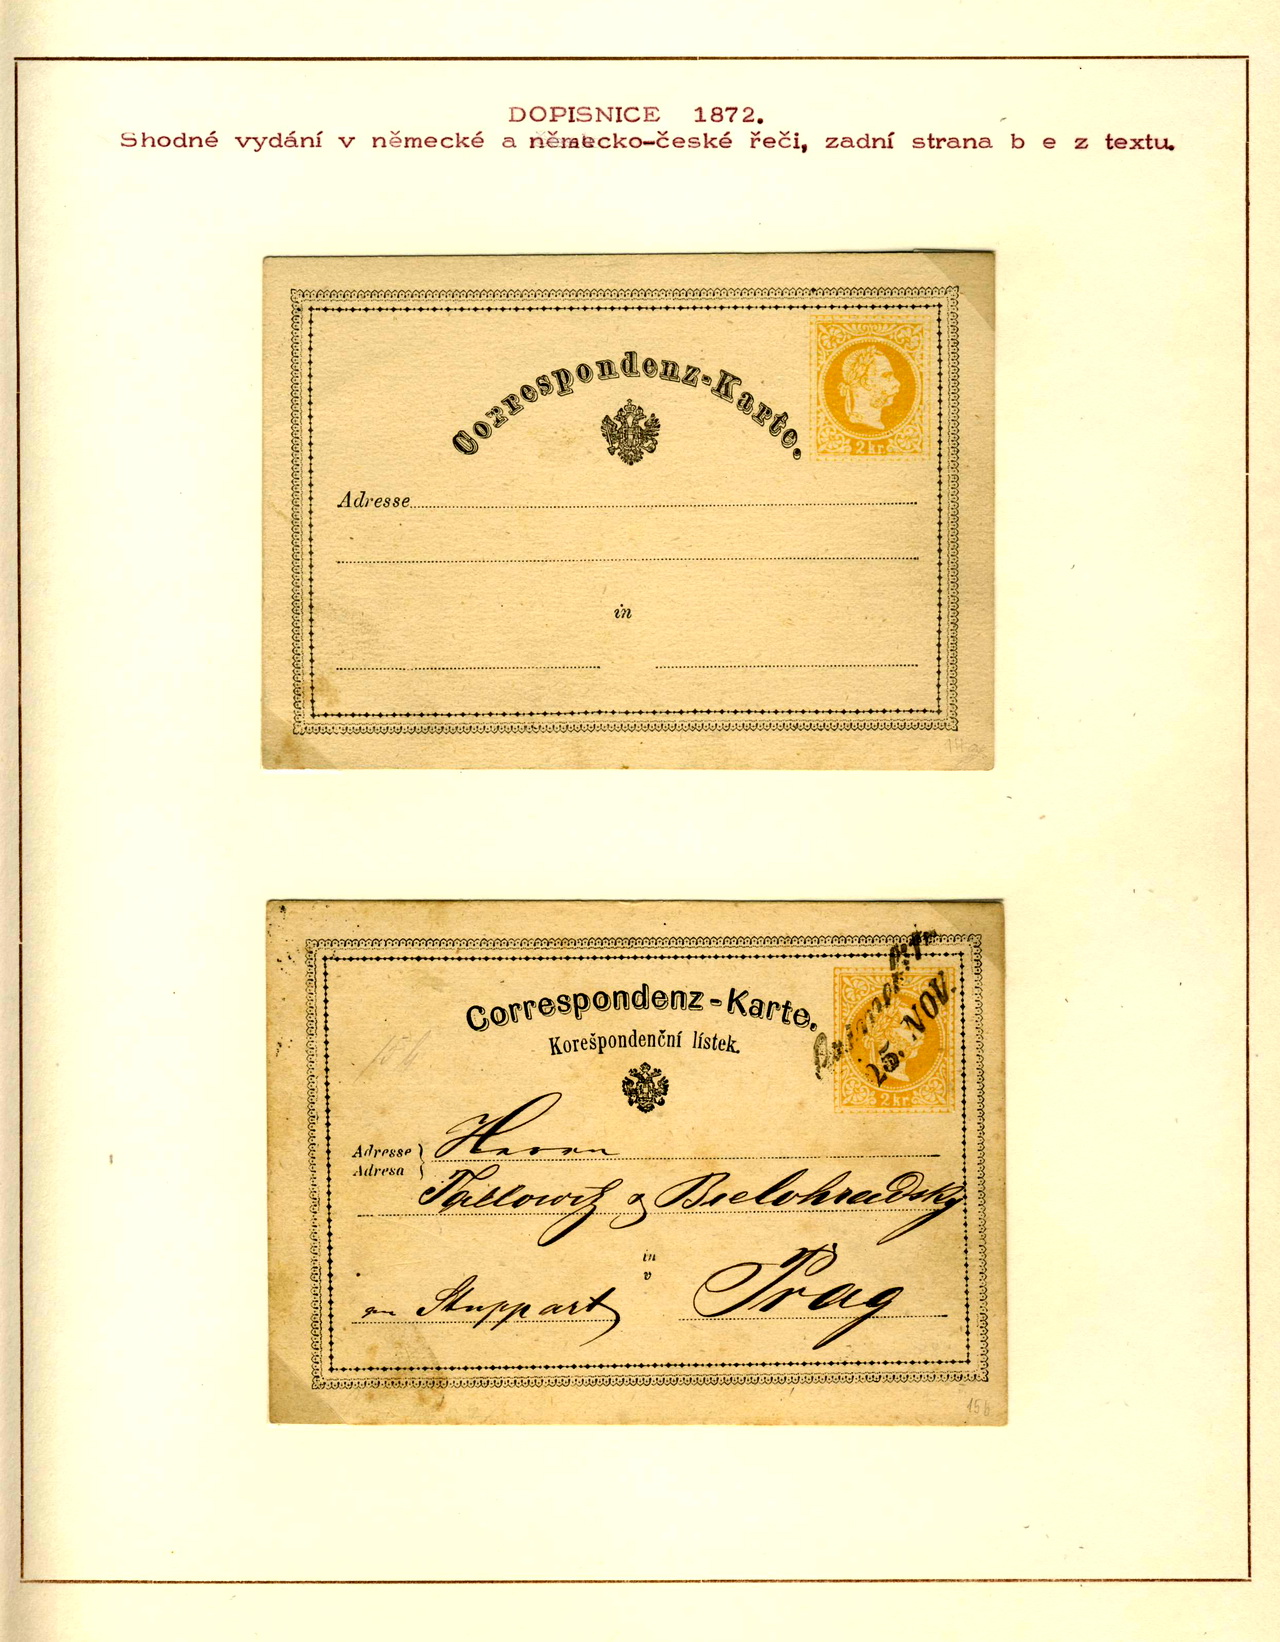 DOPISNICE 1872.
Shodné vydání v německé a německo-české řeči, zadní strana b e z textu.
Correspondenz-Karte.
2 kr.
Adresse
in
Correspondenz-Karte.
Korešpondenční lístek.
25. NOV.
2 kr.
Adresse
Adresa
Herrn
& Bielohradsky
in
v
Stuppart
Prag
15b
15b